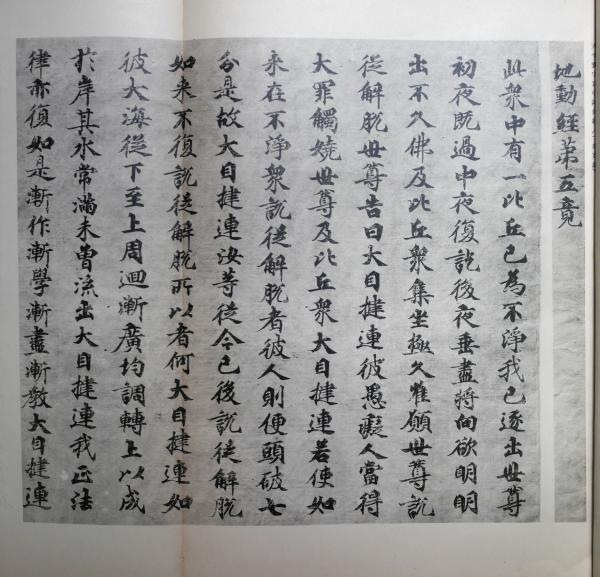 地動經第五竟
此衆中有一比丘已為不淨我已逐出世尊
初夜既過中夜復訖後夜垂盡將向欲明明
出不久佛及比丘衆集坐極久唯願世尊說
從解脫世尊告曰大目揵連彼愚癡人當得
大罪觸嬈世尊及比丘衆大目揵連若使如
來在不淨衆說從解脫者彼人則便頭破七
分是故大目揵連汝等從今已後說從解脫
如来不復說從解脫所以者何大目揵連如
彼大海從下至上周迴漸廣均調轉上以成
扵岸其水常滿未曽流出大目揵連我正法
律亦復如是漸作漸學漸盡漸教大目揵連